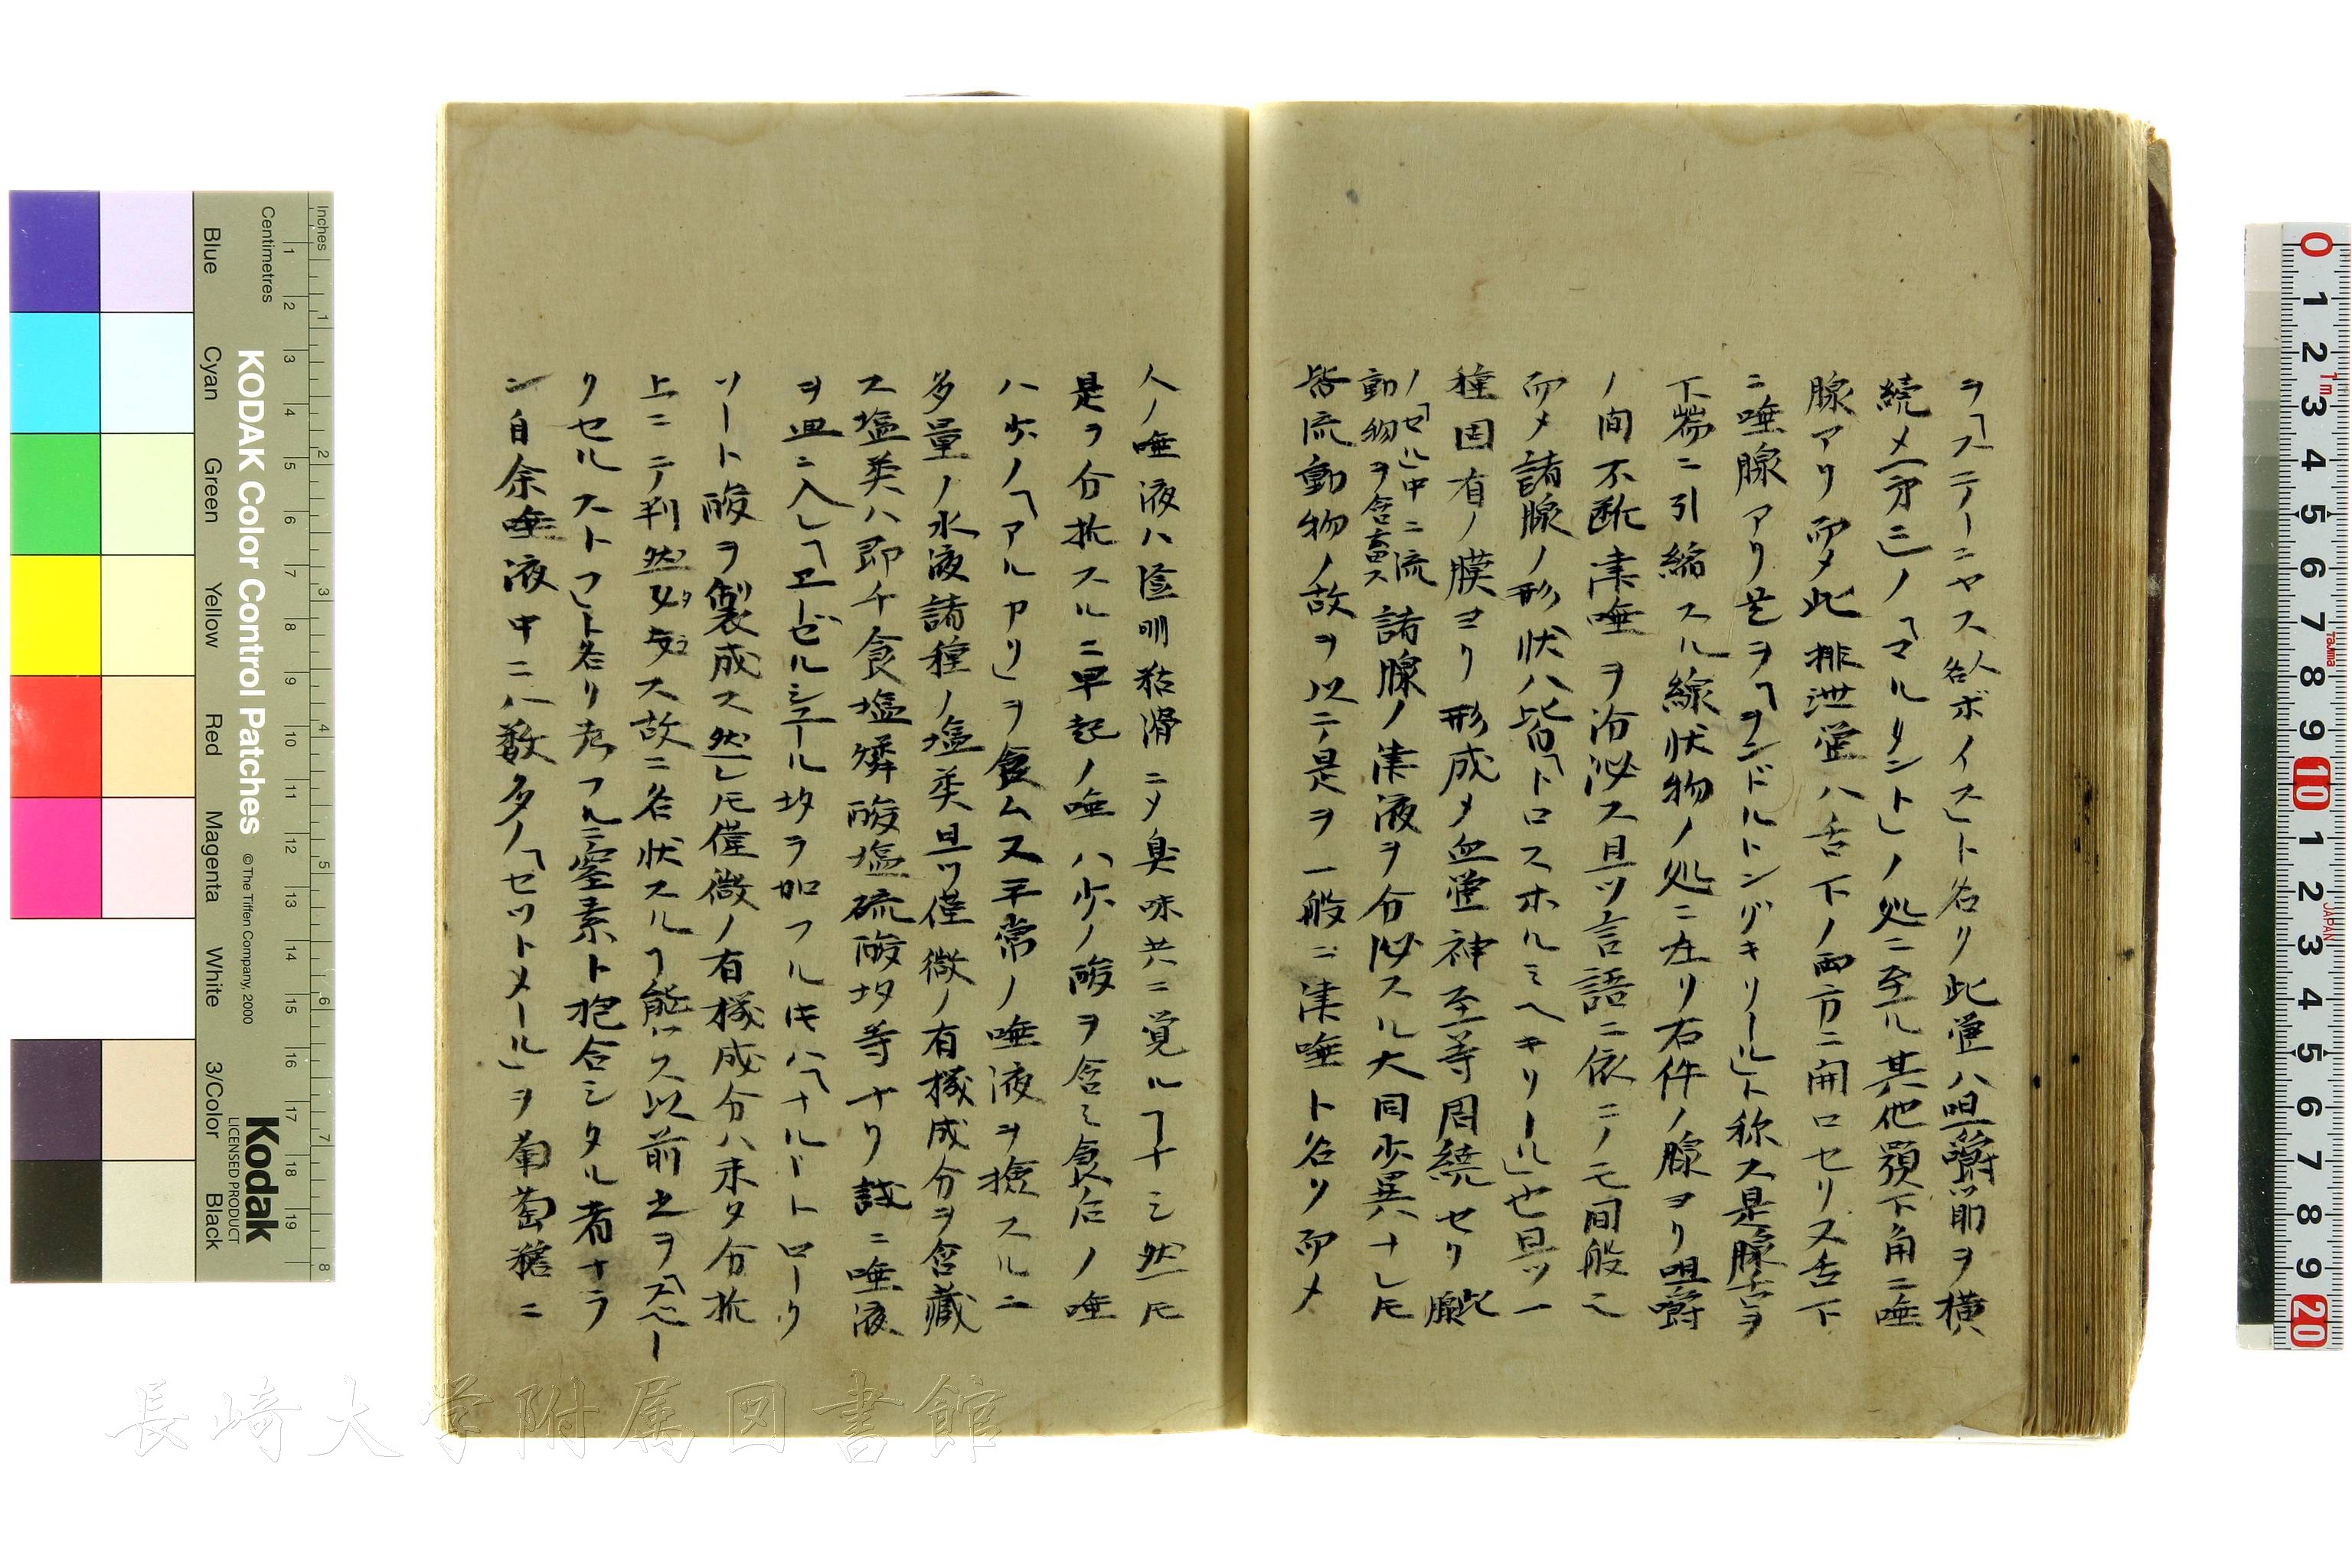 ヲ「ステーニヤス人名ボイス」ト名リ此管ハ咀嚼筋ヲ横
続メ第三ノ「マルタント」ノ処ニ至ル其他顎下角ニ唾
腺アリ而メ此排泄管ハ舌下ノ両方ニ開口セリ又舌下
ニ唾腺アリ是ヲ「ヲンドルトングキリール」ト称ス是腺舌ヲ
下端ニ引縮スル線状物ノ処ニ在リ右件ノ腺ヨリ咀嚼
ノ間不断津唾ヲ泌ス且ツ言語ニ依ニノモ同般之
而メ諸腺ノ形状ハ皆「トロスホルミヘキリール」也且ツ一
種固有ノ膜ヨリ形成メ血管神至等周繞セリ此腺
ノ「セル」中ニ流動物ヲ含畜ス諸腺ノ津液ヲ分泌スル大同少異ナレ𪜈
皆流動物ノ故ヲ以テ是ヲ一般ニ津唾ト名リ而メ
人ノ唾液ハ透明粘滑ニメ臭味共ニ覚ルヿナシ然𪜈
是ヲ分拆スルニ早起ノ唾ハ少ノ酸ヲ含ミ食后ノ唾
ハ少ノ「アルカリ」ヲ食ム又平常ノ唾液ヲ撿スルニ
多量ノ水液諸種ノ塩类且ツ僅微ノ有機成分ヲ含蔵
ス塩类ハ即チ食塩燐酸塩硫酸坸等ナリ試ニ唾液
ヲ皿ニ入レ「エーゼルシュール」坸ヲ加フル片ハ「ナルドトローク
ソート酸ヲ製成ス然レ𪜈僅微ノ有機成分ハ未タ分拆
上ニテ判然タラス故ニ名状スルヿ能ハス以前之ヲ「スペー
クセルストフ」ト名リ考フルニ窒素ト抱合シタル者ナラ
ン自余唾液中ニハ数多ノ「セットメール」ヲ葡萄糖ニ
KODAK Color Control Patches
© The Tiffen Company, 2000
Kodak
LICENSED PRODUCT
Inches
Centimetres
Blue
Cyan
Green
Yellow
Red
Magenta
White
3/Color
Black
長崎大学附属図書館